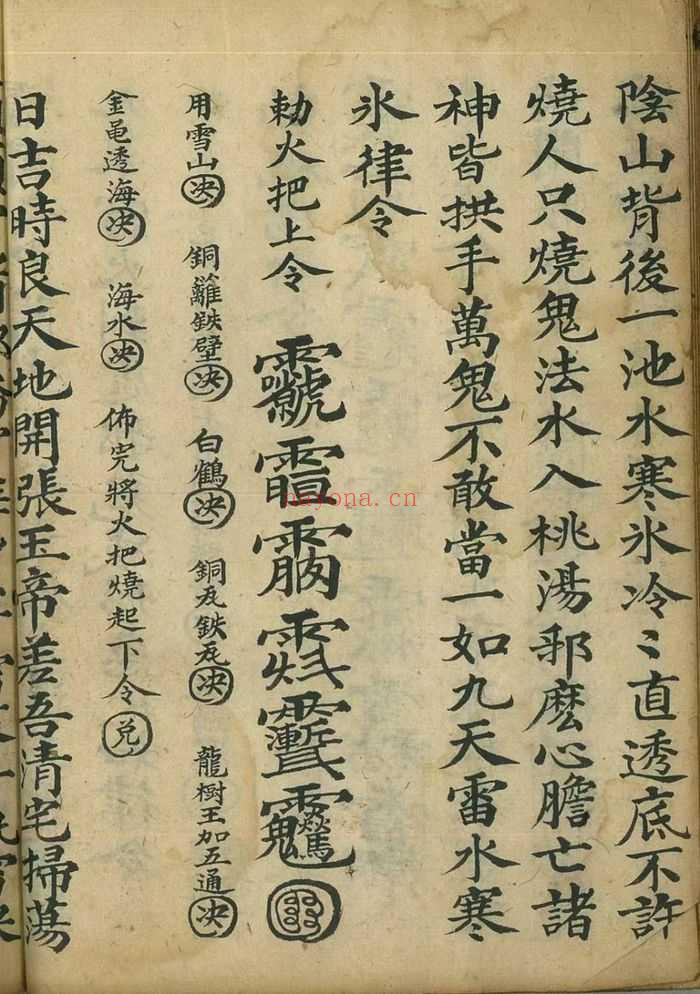 陰山背後一池水寒氷冷〻直透底不許
燒人只燒鬼法水入桃湯邪麽心膽亡諸
神皆拱手萬鬼不敢當一如九天雷水寒
氷律令
勅火把上令
用雪山决 銅籬鉄壁决 白鶴决 銅瓦鉄瓦决 龍樹王加五通决
金黾透海决 海水决 佈完將火把燒起下令兑
日吉時良天地開張玉帝差吾清宅掃蕩
nayona.cn